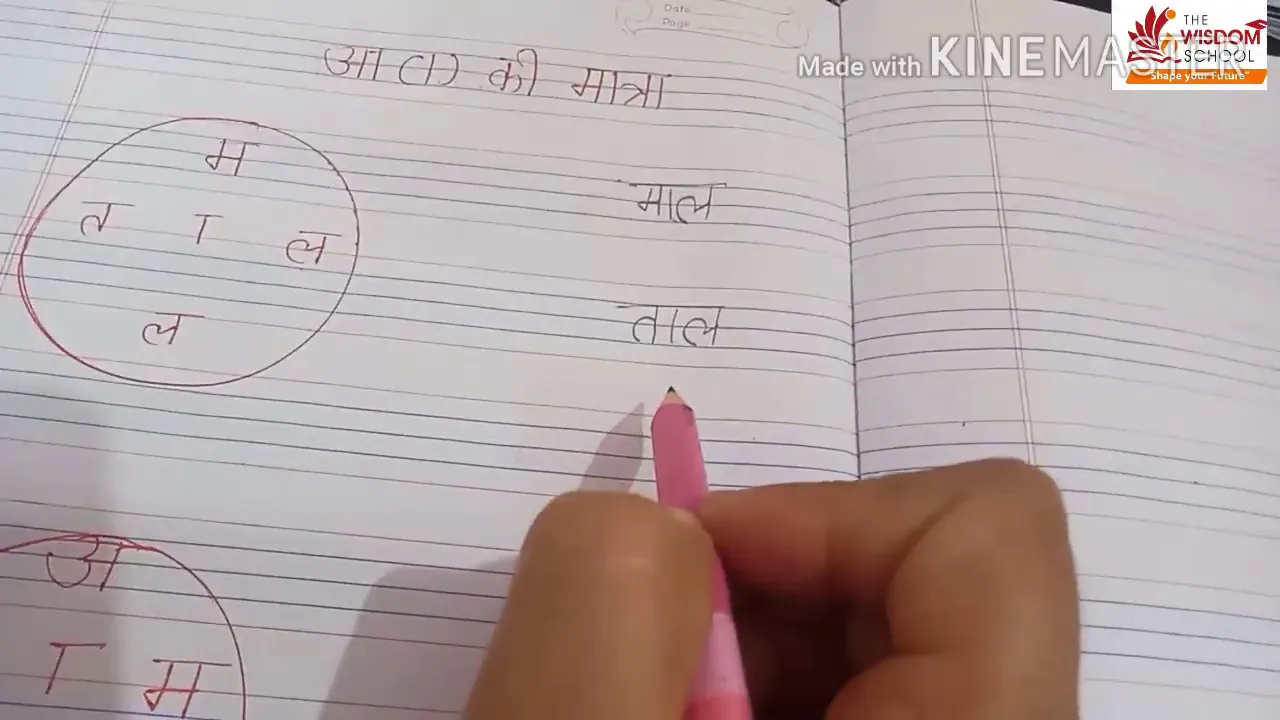 Date
Page
THE
WISDOM
SCHOOL
"Shape your Future"
Made with KINEMASTER
आ (ा) की मात्रा
म
त ा ल
ल
माल
ताल
अ
ा म